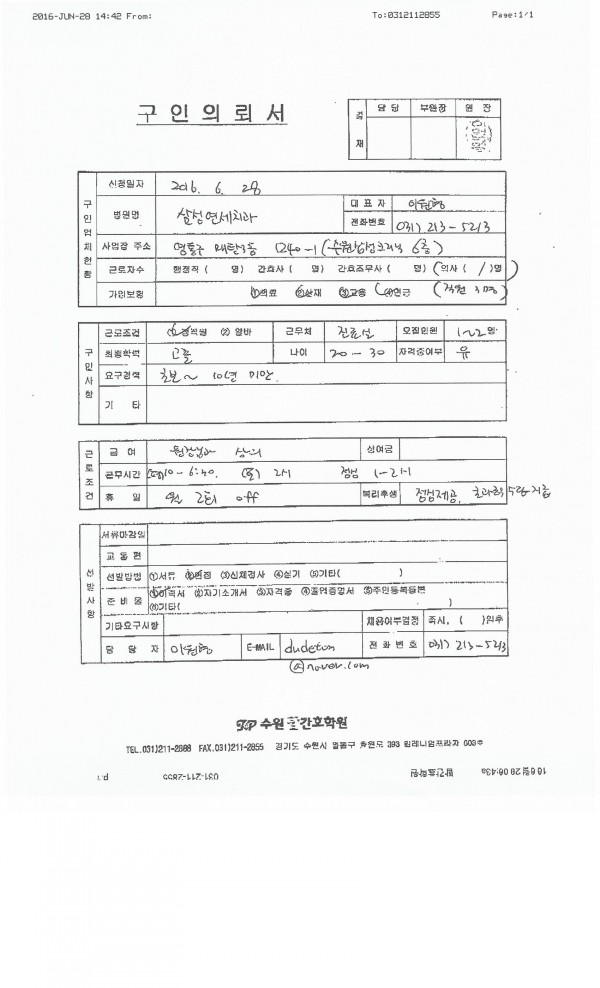 2016-JUN-28 14:42 From: To:0312112855 Page:1/1
구 인 의 뢰 서
결재 담 당 부원장 원 장
구인업체현황
신청일자 2016. 6. 28
병원명 삼성연세치과 대 표 자 이원형
전화번호 031) 213-5213
사업장 주소 영통구 매탄3동 1240-1 (수원삼성 6층)
근로자수 행정직 ( 명) 간호사 ( 명) 간호조무사 ( 명) (의사 ( / )명)
가입보험 ①의료 ②산재 ③고용 ④연금 (직원 3명)
구인사항
근로조건 ①정직원 ② 알바 근무처 진료실 모집인원 1~2명
최종학력 고졸 나이 20-30 자격증여부 유
요구경력 초보~ 10년 미만
기 타
근로조건
급 여 원장님과 상의 상여금
근무시간 10-6:40. (토) 2시 점심 1-2시
휴 일 월 2회 off 복리후생 점심제공,
선발사항
서류마감일
교 통 편
선발방법 ①서류 ②면접 ③신체검사 ④실기 ⑤기타( )
준 비 물 ①이력서 ②자기소개서 ③자격증 ④졸업증명서 ⑤주민등록등본
⑥기타( )
기타요구사항 채용여부결정 즉시, ( )일후
담 당 자 이원형 E-MAIL dudetun 전 화 번 호 031) 213-5213
@naver.com
수원 간호학원
TEL.031)211-2888 FAX.031)211-2855 경기도 수원시 영통구 393 밀레니엄프라자 603호
p.1 031-211-2855